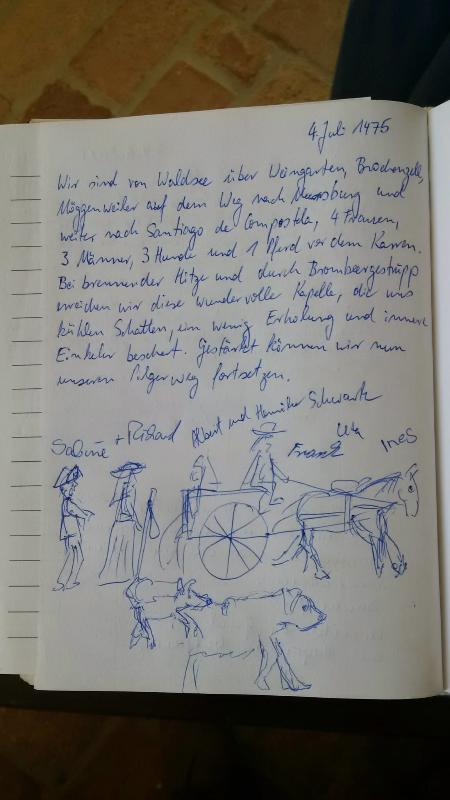 4. Juli 1475
Wir sind von Waldsee über Weingarten, Brochenzell,
Möggenweiler auf dem Weg nach Meersburg und
weiter nach Santiago de Compostela, 4 Frauen,
3 Männer, 3 Hunde und 1 Pferd vor dem Karren.
Bei brennender Hitze und durch Brombeergestrüpp
erreichen wir diese wundervolle Kapelle, die uns
kühlen Schatten, ein wenig Erholung und innere
Einkehr beschert. Gestärkt können wir nun
unseren Pilgerweg fortsetzen.
Sabine + Richard
Albert und Schwartz
Frank
Ines